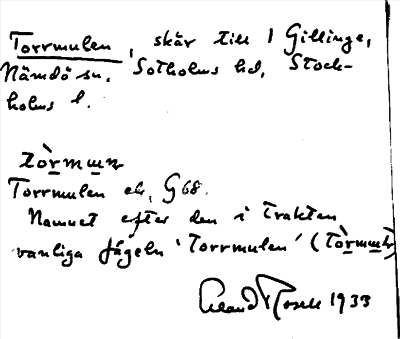 Torrmulen, skär till 1 Gillinge,
Nämdö sn. Sotholms hd, Stock-
holms l.
tòrmɯn
Torrmulen ek, G 68.
Namnet efter den i trakten
vanliga fågeln 'Torrmulen' (tòrmɯn)
Erland Rosell 1933